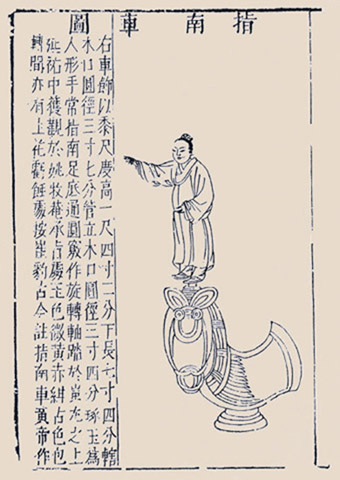 指南車圖
右車飾以黍尺度高一尺四寸二分下長七寸四分轄
木口圓徑三寸七分管立木口圓徑三寸四分琢玉為
人形手常指南足底通圓竅作旋轉軸踏於蚩尤之上
延祐中獲觀於姚牧菴承旨處玉色微黃赤紺古色包
轉間亦有土花蘚蝕處按崔豹古今註指南車黃帝作